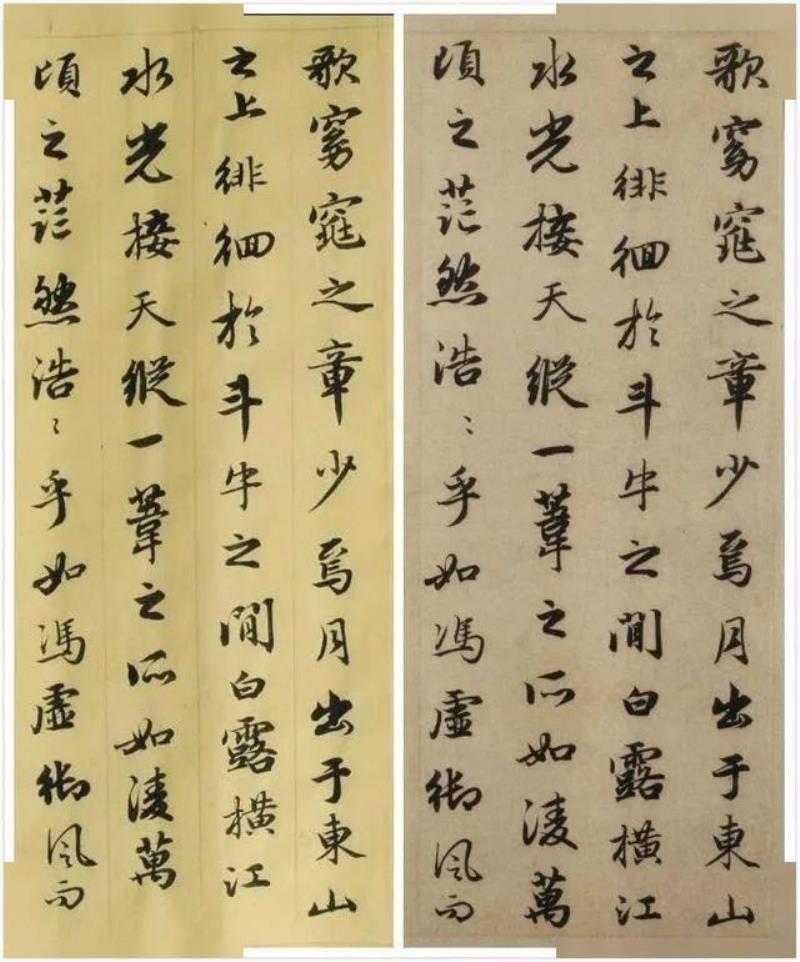 歌窈窕之章少焉月出于東山
之上徘徊於斗牛之間白露橫江
水光接天縱一葦之所如凌萬
頃之茫然浩〻乎如馮虛御風而
歌窈窕之章少焉月出于東山
之上徘徊於斗牛之間白露橫江
水光接天縱一葦之所如凌萬
頃之茫然浩〻乎如馮虛御風而